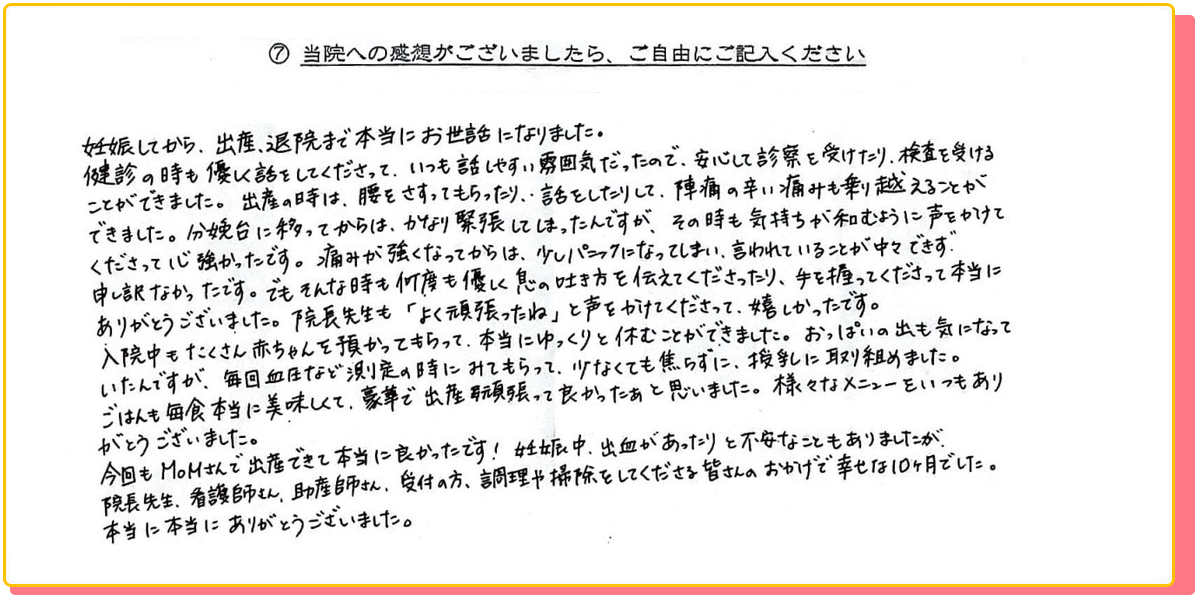 ⑦ 当院への感想がございましたら、ご自由にご記入ください
妊娠してから、出産、退院まで本当にお世話になりました。
健診の時も優しく話をしてくださって、いつも話しやすい雰囲気だったので、安心して診察を受けたり、検査を受ける
ことができました。出産の時は、腰をさすってもらったり、話をしたりして、陣痛の辛い痛みも乗り越えることが
できました。分娩台に移ってからは、かなり緊張してしまったんですが、その時も気持ちが和むように声をかけて
くださって心強かったです。痛みが強くなってからは、少しパニックになってしまい、言われていることが中々できず、
申し訳なかったです。でもそんな時も何度も優しく息の吐き方を伝えてくださったり、手を握ってくださって本当に
ありがとうございました。院長先生も「よく頑張ったね」と声をかけてくださって、嬉しかったです。
入院中もたくさん赤ちゃんを預かってもらって、本当にゆっくりと休むことができました。おっぱいの出も気になって
いたんですが、毎回血圧など測定の時にみてもらって、少なくても焦らずに、授乳に取り組めました。
ごはんも毎食本当に美味しくて、豪華で出産頑張って良かったぁと思いました。様々なメニューをいつもあり
がとうございました。
今回もMOMさんで出産できて本当に良かったです！妊娠中、出血があったりと不安なこともありましたが、
院長先生、看護師さん、助産師さん、受付の方、調理や掃除をしてくださる皆さんのおかげで幸せな10ヶ月でした。
本当に本当にありがとうございました。